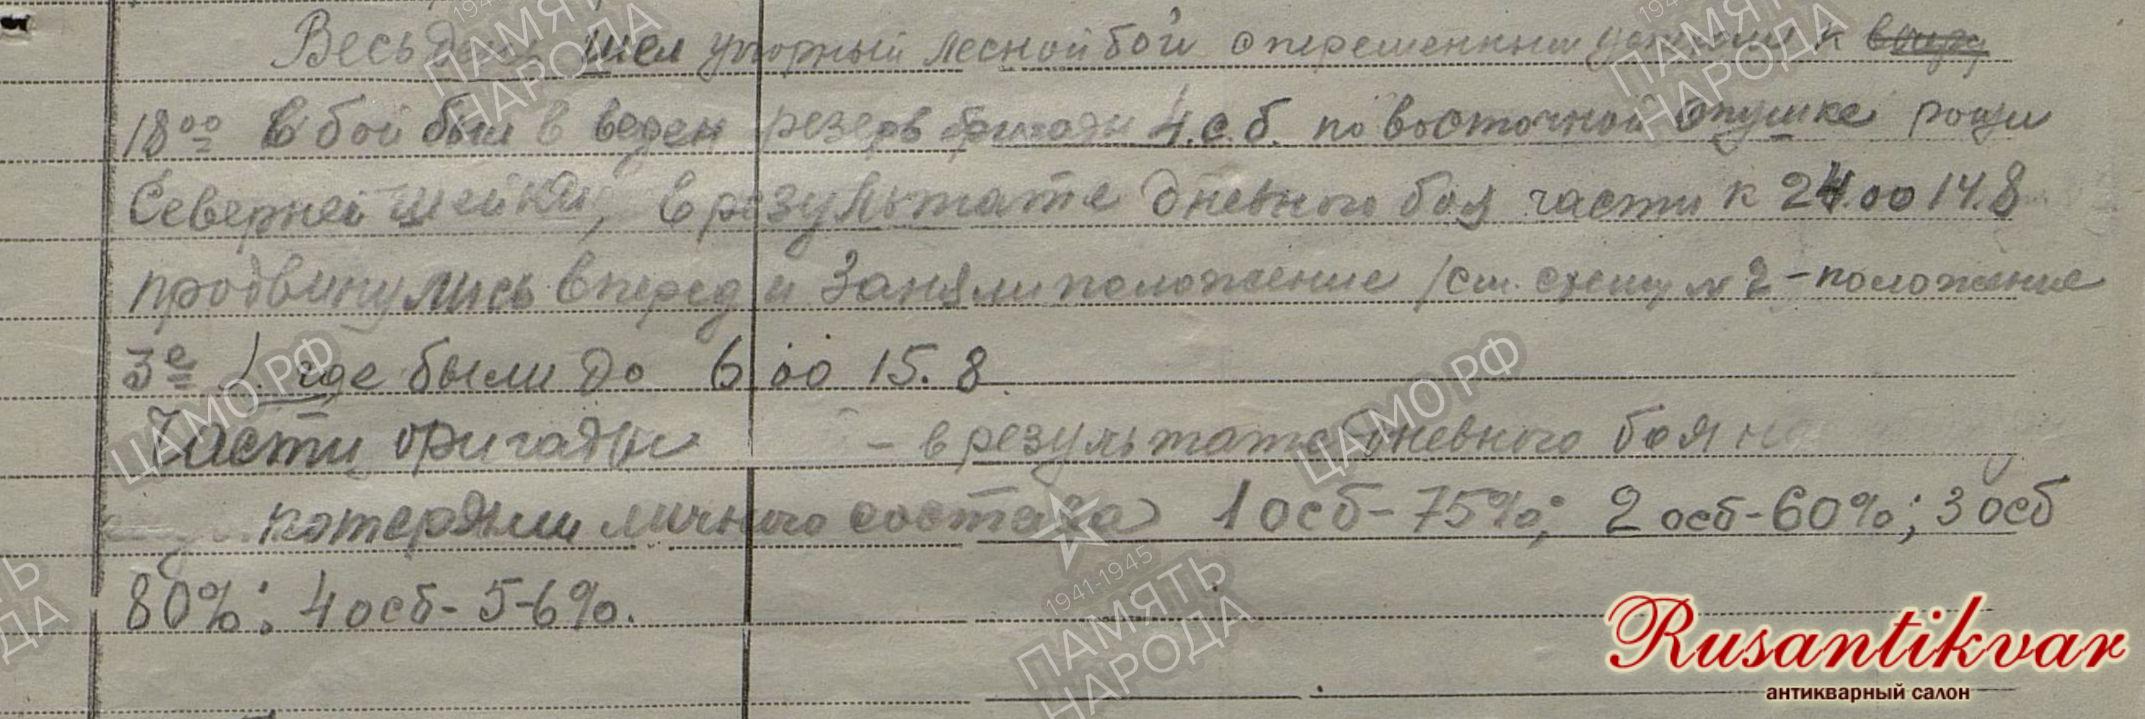 Весь день шел упорный лесной бой с переменным успехом к
18⁰⁰ в бой был в веден резерв бригады 4.с.б. по восточной опушке рощи
Северней шейки, в результате дневного боя части к 24.00 14.8
продвинулись вперед и заняли положение /см. схему № 2 – положение
3е /. где были до 6.00 15.8
Части бригады – в результате дневного боя
потеряли личного состава 1 осб – 75%; 2 осб – 60%; 3 осб
80%; 4 осб – 5-6%.
1941-1945
ПАМЯТЬ
НАРОДА
ЦАМО.РФ
ЦАМО.РФ
1941-1945
ПАМЯТЬ
НАРОДА
1941-1945
ПАМЯТЬ
НАРОДА
Rusantikvar
антикварный салон